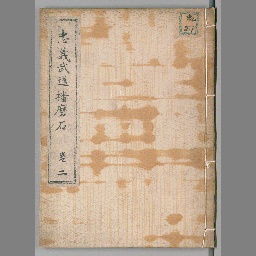 忠義武道播磨石 巻二